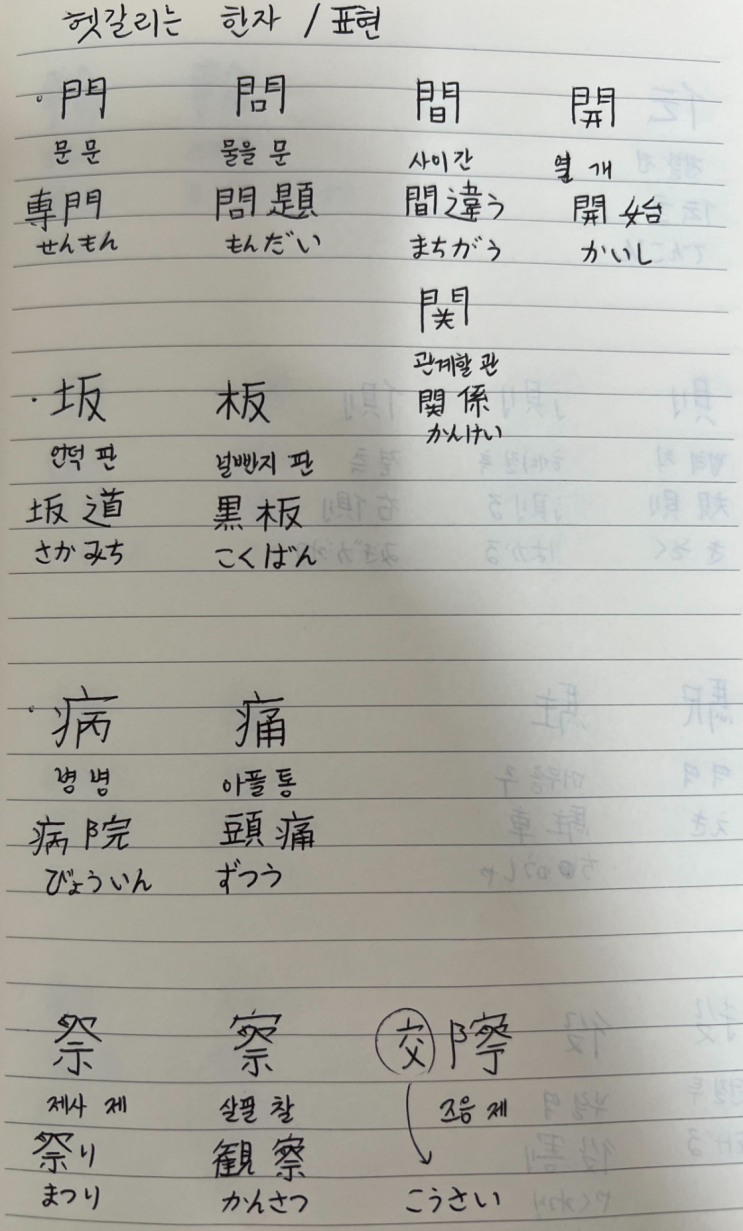 헷갈리는 한자 / 표현
· 門 問 間 開
문 문 물을 문 사이 간 열 개
専門 問題 間違う 開始
せんもん もんだい まちがう かいし
関
관계할 관
関係
かんけい
· 坂 板
언덕 판 널빤지 판
坂道 黒板
さかみち こくばん
· 病 痛
병 병 아플 통
病院 頭痛
びょういん ずつう
祭 察 交際
제사 제 살필 찰 즈음 제
祭り 観察
まつり かんさつ こうさい